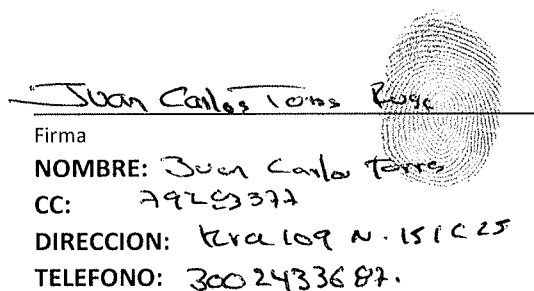 Juan Carlos Torres Ruge
Firma
NOMBRE: Juan Carlos Torres
CC: 79283377
DIRECCION: Kra 109 N. 151C25
TELEFONO: 3002433687.